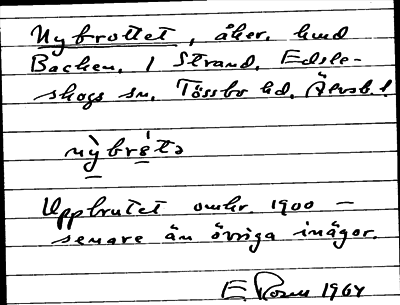 Nybrottet, åker, hmd
Backen, 1 Strand, Edsle-
skogs sn, Tössbo hd, Älvsb. l.
nỳbrɵ́tə
Uppbrutet omkr. 1900 –
senare än övriga inägor.
E Rosén 1964